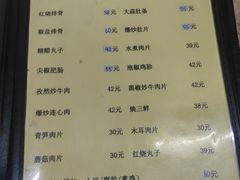 红烧排骨 58元 大蒜肚条 55元
椒盐排骨 60元 爆炒肚片 55元
糖醋丸子 42元 水煮肉片 39元
尖椒肥肠 55元 泡椒鸡胗 42元
孜然炒牛肉 42元 黑椒炒牛肉 42元
爆炒连心肉 42元 烧三鲜 38元
青笋肉片 30元 木耳肉片 30元
蘑菇肉片 30元 红烧丸子 39元
50元